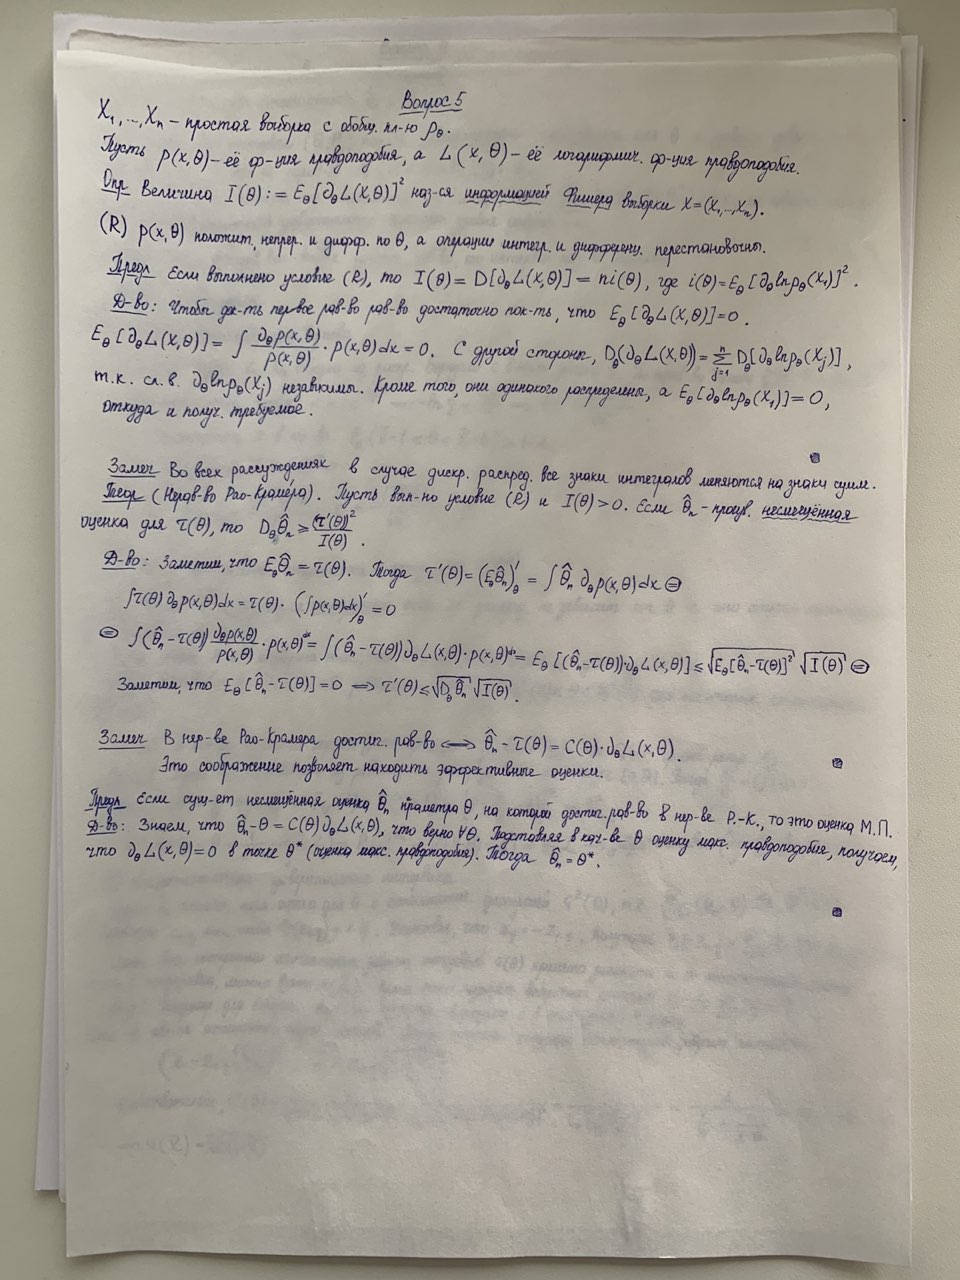 Вопрос 5
X₁,...,Xₙ – простая выборка с обобщ. пл-ю ρ_θ.
Пусть p(x,θ) – её ф-ция правдоподобия, а L(x,θ) – её логарифмич. ф-ция правдоподобия.
Опр Величина I(θ) := E_θ[∂_θL(X,θ)]² наз-ся информацией Фишера выборки X=(X₁,...,Xₙ).
(R) p(x,θ) положит., непрер. и дифф. по θ, а операции интегр. и дифференц. перестановочны.
Предл Если выполнено условие (R), то I(θ) = D[∂_θL(X,θ)] = ni(θ), где i(θ)=E_θ[∂_θlnρ_θ(X₁)]².
Д-во: Чтобы док-ть первое рав-во рав-во достаточно пок-ть, что E_θ[∂_θL(X,θ)]=0.
E_θ[∂_θL(X,θ)] = ∫ ∂_θp(x,θ)/p(x,θ) · p(x,θ)dx = 0. С другой стороны, D_θ(∂_θL(X,θ)) = Σ_{j=1}^{n} D_θ[∂_θlnρ_θ(X_j)],
т.к. сл.в. ∂_θlnρ_θ(X_j) независимы. Кроме того, они одинаково распределены, а E_θ[∂_θlnρ_θ(X₁)]=0,
откуда и получ. требуемое.
Замеч Во всех рассуждениях в случае дискр. распред. все знаки интегралов меняются на знаки сумм.
Теор (Нерав-во Рао-Крамера). Пусть вып-но условие (R) и I(θ)>0. Если θ̂ₙ – произв. несмещённая
оценка для τ(θ), то D_θθ̂ₙ ≥ (τ'(θ))²/I(θ).
Д-во: Заметим, что E_θθ̂ₙ = τ(θ). Тогда τ'(θ) = (E_θθ̂ₙ)'_θ = ∫θ̂ₙ ∂_θp(x,θ)dx ⊜
∫τ(θ) ∂_θp(x,θ)dx = τ(θ)·(∫p(x,θ)dx)'_θ = 0
⊜ ∫(θ̂ₙ – τ(θ)) ∂_θp(x,θ)/p(x,θ) · p(x,θ)dx = ∫(θ̂ₙ – τ(θ))∂_θL(x,θ)·p(x,θ)dx = E_θ[(θ̂ₙ–τ(θ))·∂_θL(x,θ)] ≤ √E_θ[θ̂ₙ–τ(θ)]² √I(θ) ⊜
Заметим, что E_θ[θ̂ₙ–τ(θ)]=0 ⟹ τ'(θ) ≤ √D_θθ̂ₙ √I(θ).
Замеч В нер-ве Рао-Крамера достиг. рав-во ⟺ θ̂ₙ – τ(θ) = C(θ)·∂_θL(x,θ).
Это соображение позволяет находить эффективные оценки.
Предл Если сущ-ет несмещённая оценка θ̂ₙ праметра θ, на которой достиг. рав-во в нер-ве Р.-К., то это оценка М.П.
Д-во: Знаем, что θ̂ₙ–θ = C(θ)∂_θL(x,θ), что верно ∀θ. Подставляя в кач-ве θ оценку макс. правдоподобия, получаем,
что ∂_θL(x,θ)=0 в точке θ* (оценка макс. правдоподобия). Тогда θ̂ₙ=θ*.